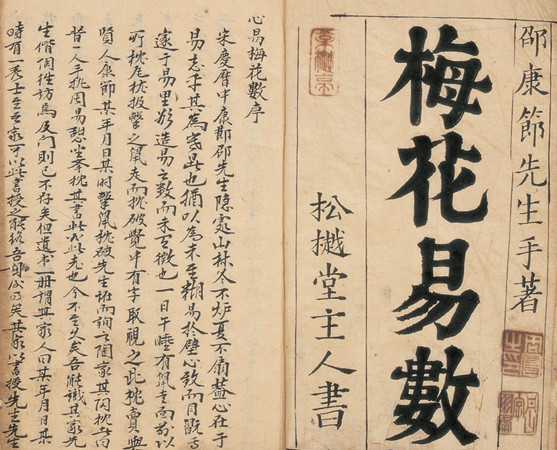 邵康節先生手著
梅花易數
松樾堂主人書
心易梅花數序
宋慶曆中康節邵先生隱處山林冬不炉夏不扇蓋心在于
易忘乎其為寒暑也猶以為未至糊易於壁心致而目翫焉
邃于易理欲造易之數而未有徵也一日午睡有鼠走而前以
所枕瓦枕投擊之鼠走而枕破覺中有字取視之此枕賣與
賢人康節某年月日某時擊鼠枕破先生怪而詢之陶家其陶枕者曰
昔一人手執周易憩坐舉枕其書此必此老也今不至久矣吾能識其家先
生偕陶往訪焉及門則已不存矣但遺書一冊謂其家人曰某年月日某
時有一秀士至吾家可以此書授之能終吾身矣其家以書授先生先生